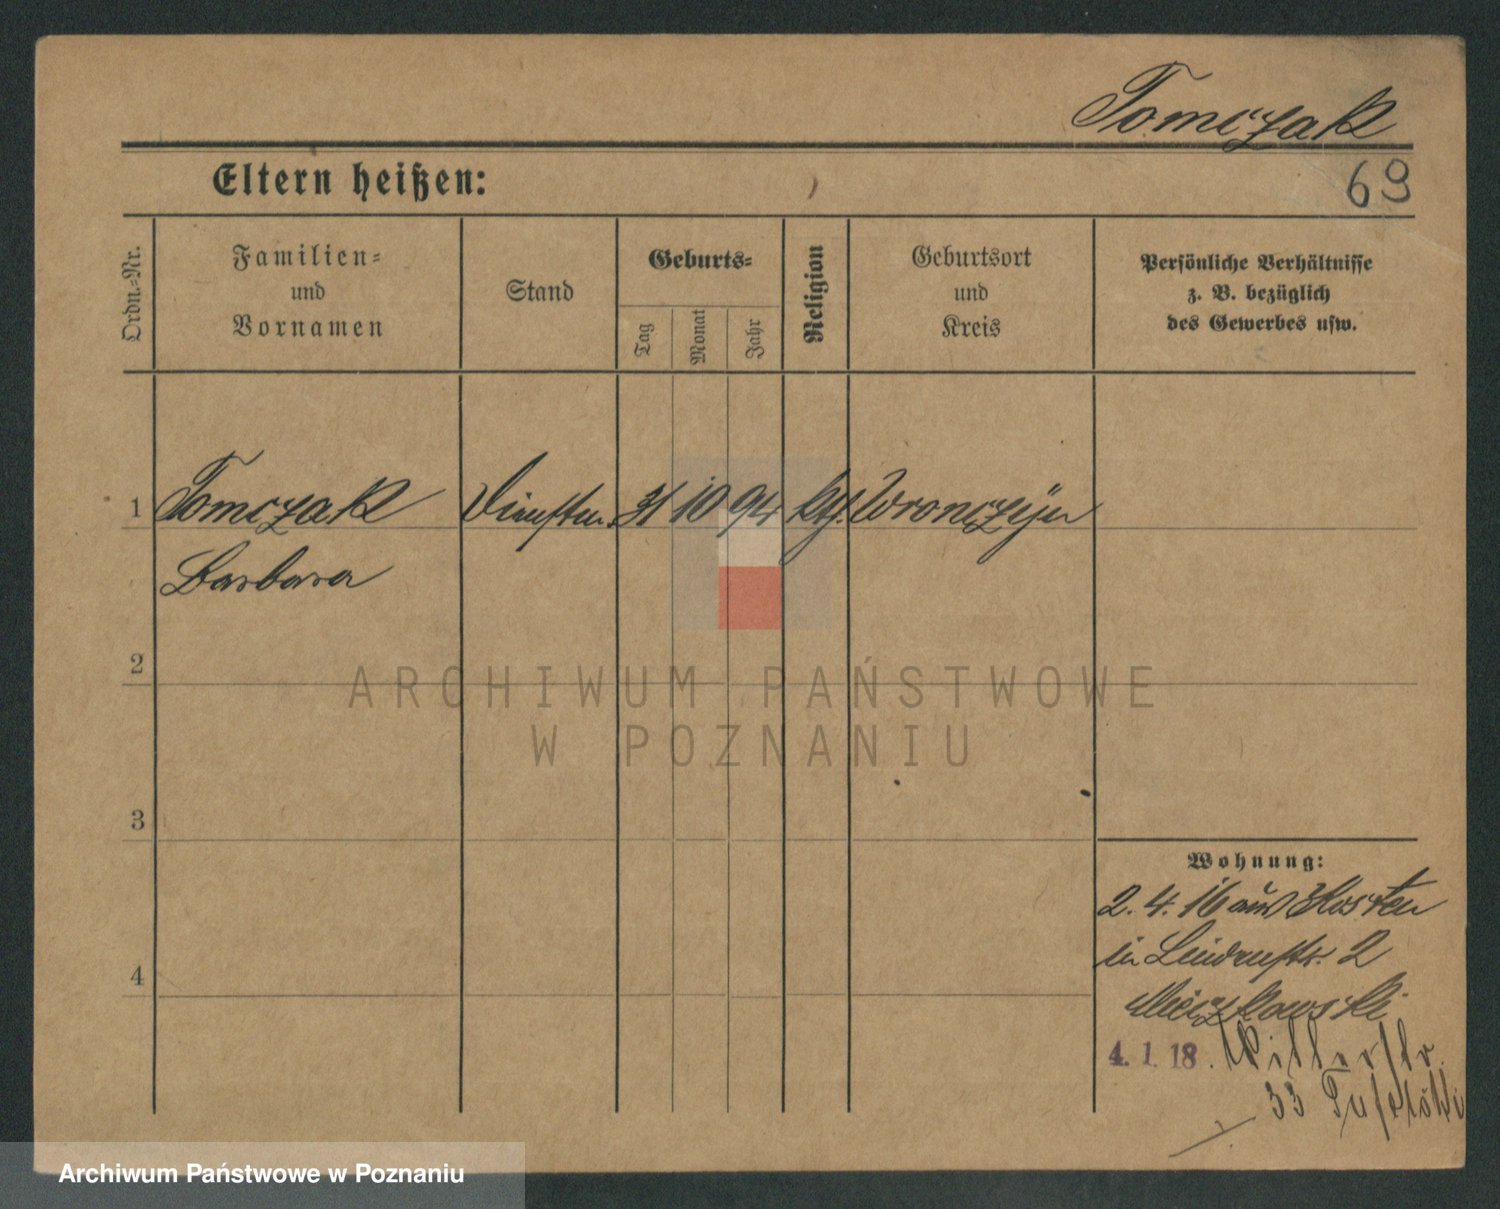 Tomczak
69
Eltern heißen:
Ordn.-Nr.
Familien-
und
Vornamen
Stand
Geburts-
Tag
Monat
Jahr
Religion
Geburtsort
und
Kreis
Persönliche Verhältnisse
z. B. bezüglich
des Gewerbes usw.
1 Tomczak 31 10 94 kth. Wronczyn
Barbara
2
ARCHIWUM PAŃSTWOWE
W POZNANIU
3
4
Wohnung:
2. 4. 16 aus Kosten
in Lindenstr. 2
4. 1. 18. Ritterstr.
33
Archiwum Państwowe w Poznaniu